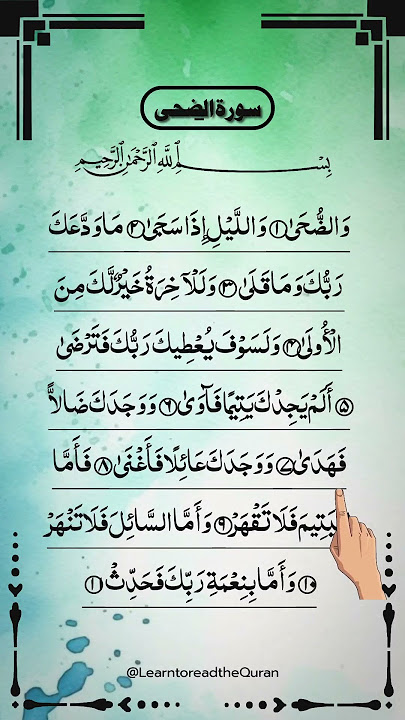 سورة الضحى
بِسْمِ اللَّهِ الرَّحْمَٰنِ الرَّحِيمِ
وَالضُّحَىٰ ۝١ وَاللَّيْلِ إِذَا سَجَىٰ ۝٢ مَا وَدَّعَكَ
رَبُّكَ وَمَا قَلَىٰ ۝٣ وَلَلْآخِرَةُ خَيْرٌ لَّكَ مِنَ
الْأُولَىٰ ۝٤ وَلَسَوْفَ يُعْطِيكَ رَبُّكَ فَتَرْضَىٰ
۝٥ أَلَمْ يَجِدْكَ يَتِيمًا فَآوَىٰ ۝٦ وَوَجَدَكَ ضَالًّا
فَهَدَىٰ ۝٧ وَوَجَدَكَ عَائِلًا فَأَغْنَىٰ ۝٨ فَأَمَّا
الْيَتِيمَ فَلَا تَقْهَرْ ۝٩ وَأَمَّا السَّائِلَ فَلَا تَنْهَرْ
۝١٠ وَأَمَّا بِنِعْمَةِ رَبِّكَ فَحَدِّثْ ۝١
@LearntoreadtheQuran